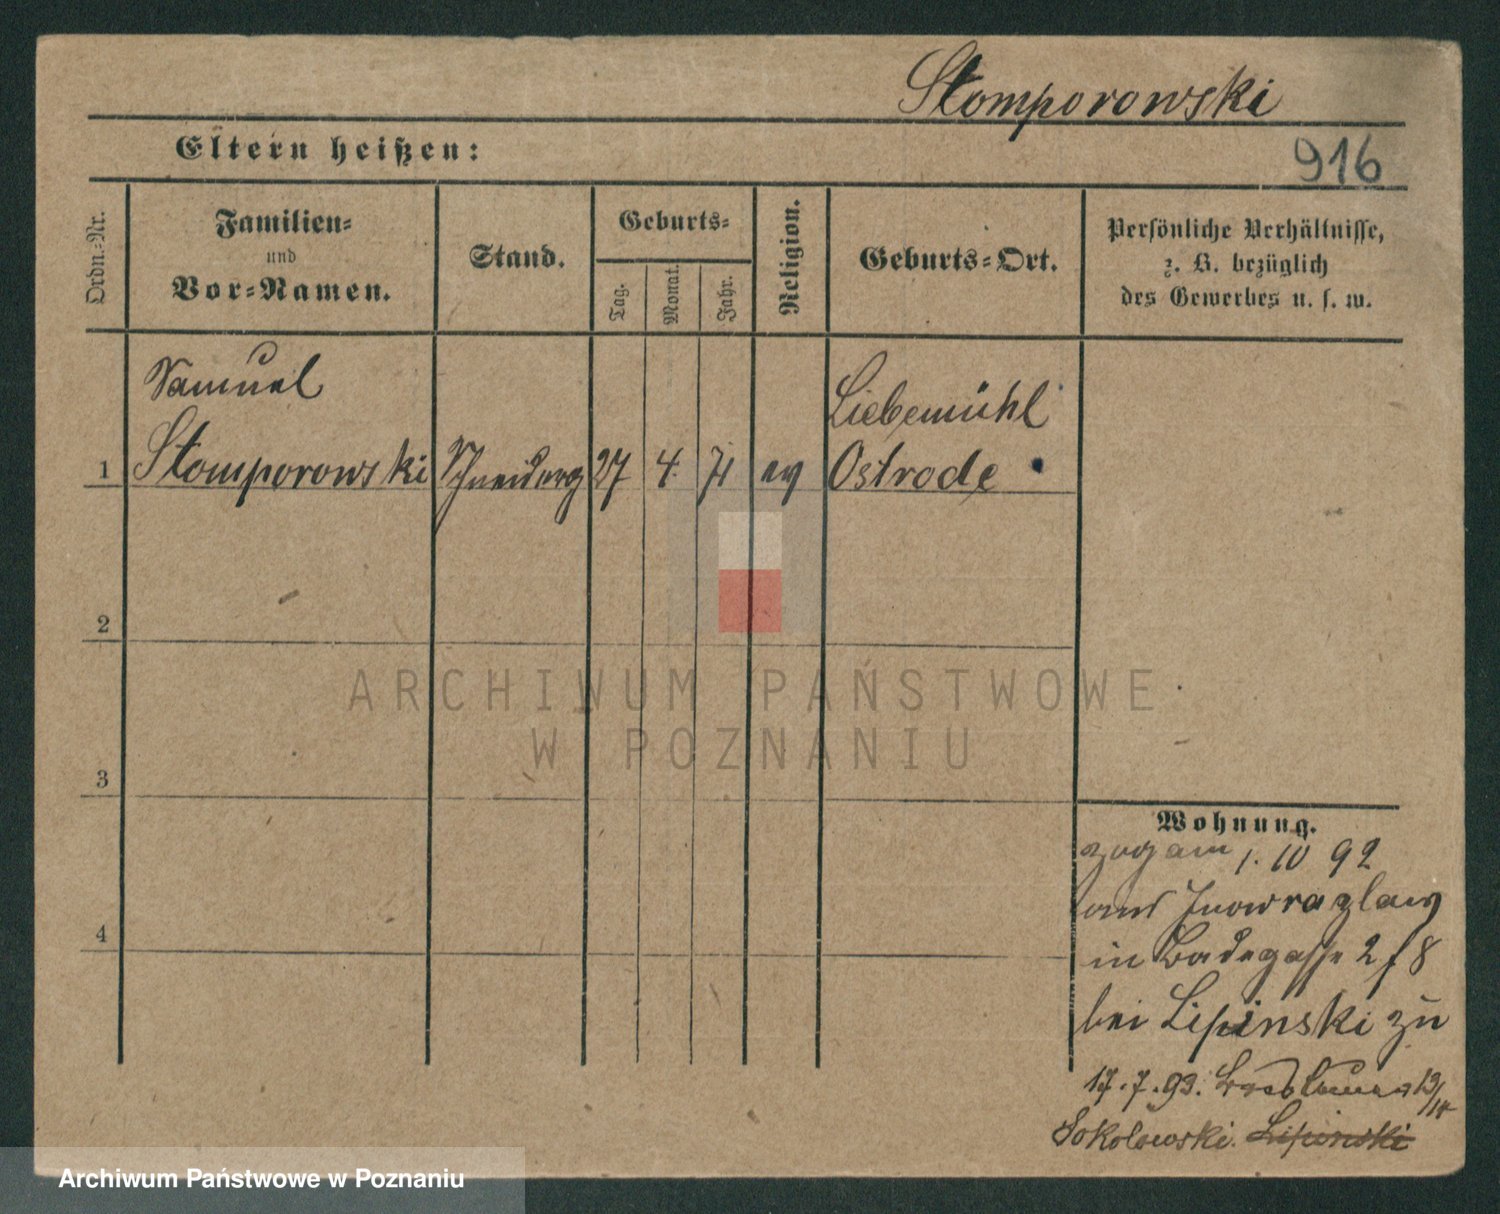 Stomporowski
Eltern heißen:
916
Ordn.-Nr.
Familien-
und
Vor-Namen.
Stand.
Geburts-
Tag.
Monat.
Jahr.
Religion.
Geburts-Ort.
Persönliche Verhältnisse,
z. B. bezüglich
des Gewerbes u. s. w.
Samuel
Stomporowski
1
Schneiderg
27
4.
71
ev
Liebemühl
Ostrode
2
3
4
Wohnung.
zog am 1. 10 92
aus Inowrazlaw
in Badegasse 2 f 8
bei Lipinski zu
17.7.93. 13/14
Sokolowski. Lipinski
ARCHIWUM PAŃSTWOWE
W POZNANIU
Archiwum Państwowe w Poznaniu